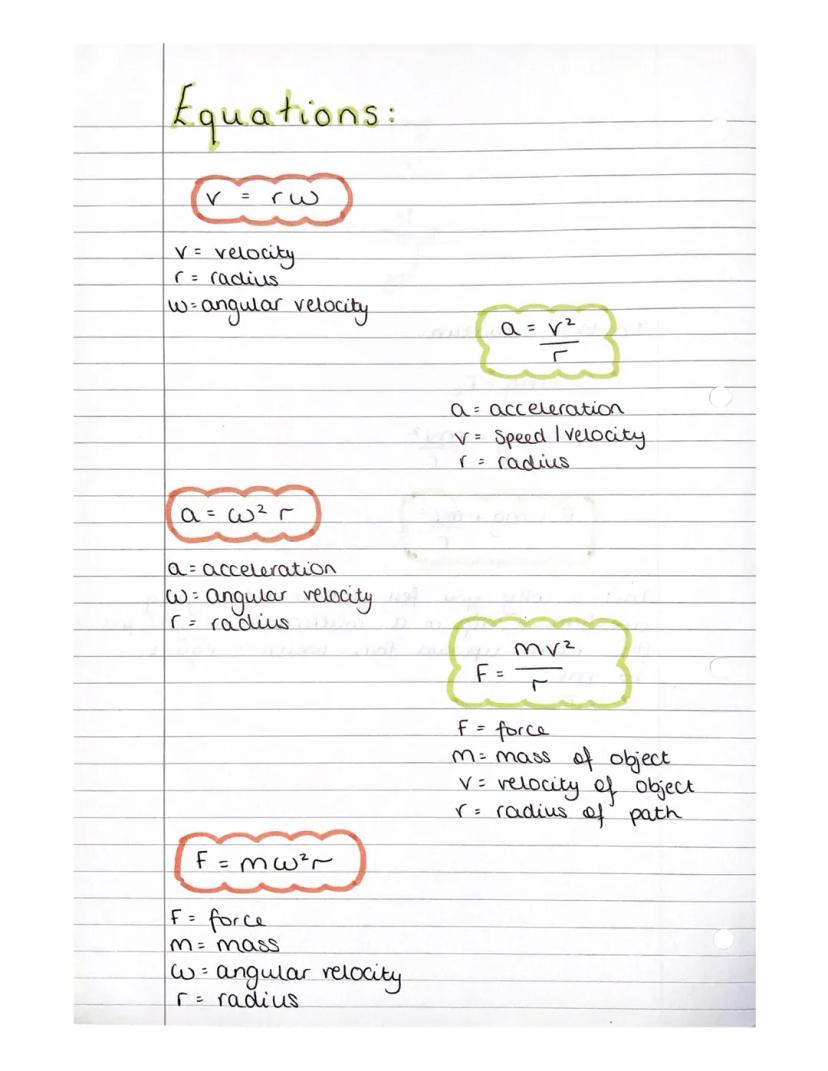 Equations:
v = rω
v = velocity
r = radius
ω = angular velocity
a = v²
r
a = acceleration
v = speed / velocity
r = radius
a = ω² r
a = acceleration
ω = angular velocity
r = radius
F = mv²
r
F = force
m = mass of object
v = velocity of object
r = radius of path
F = mω²r
F = force
m = mass
ω = angular velocity
r = radius